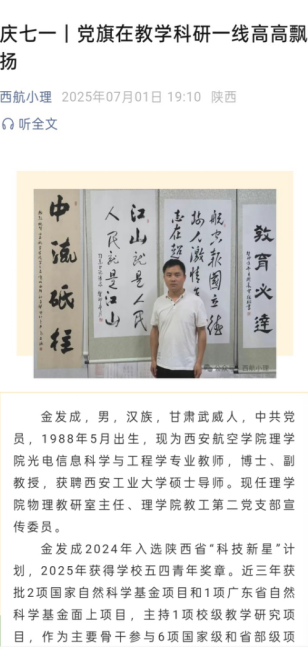 庆七一丨党旗在教学科研一线高高飘
扬
西航小理 2025年07月01日 19:10 陕西
听全文
中流砥柱
江山就是人民
人民就是江山
教育必达
西航小理
金发成，男，汉族，甘肃武威人，中共党
员，1988年5月出生，现为西安航空学院理学
院光电信息科学与工程学专业教师，博士、副
教授，获聘西安工业大学硕士导师。现任理学
院物理教研室主任、理学院教工第二党支部宣
传委员。
金发成2024年入选陕西省“科技新星”计
划，2025年获得学校五四青年奖章。近三年获
批2项国家自然科学基金项目和1项广东省自然
科学基金面上项目，主持1项校级教学研究项
目，作为主要骨干参与6项国家级和省部级项